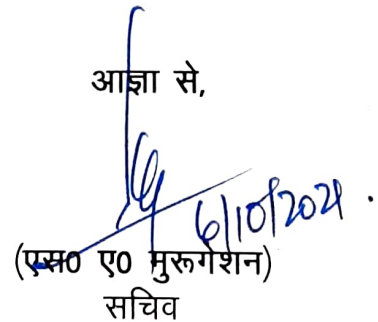 आज्ञा से,
6/10/2021.
(एस0 ए0 मुरूगेशन)
सचिव